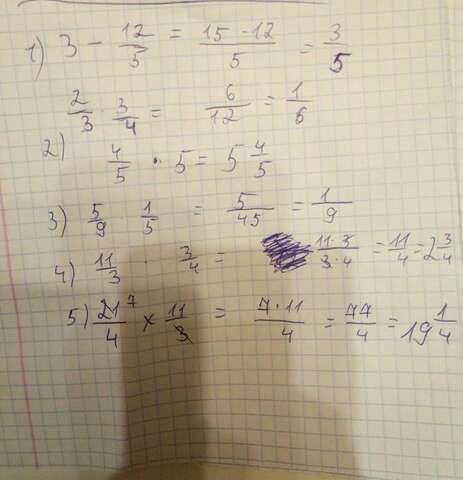 1) 3 - 12/5 = 15-12/5 = 3/5
2/3 · 3/4 = 6/12 = 1/6
2) 4/5 · 5 = 5 4/5
3) 5/9 1/5 = 5/45 = 1/9
4) 11/3 · 3/4 = 11·3/3·4 = 11/4 = 2 3/4
5) 21 7/4 x 11/3 = 7·11/4 = 77/4 = 19 1/4